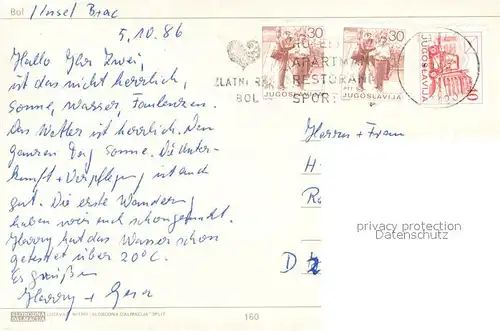 Bol / Insel Brac
5.10.86
Hallo Ihr Zwei,
ist das nicht herrlich,
Sonne, Wasser, Faulenzen.
Das Wetter ist herrlich. Den
ganzen Tag Sonne. Die Unter-
kunft + Verpflegung ist auch
gut. Die erste Wanderung
haben wir auch schon gemacht.
Harry hat das Wasser schon
getestet über 20°C.
Es grüßen
Harry +
30
30
40
JUGOSLAVIJA
JUGOSLAVIJA
JUGOSLAVIJA
HOTELI
APARTMANI
ZLATNI RAT RESTORANI
BOL SPORT
Herrn + Frau
H
D
privacy protection
Datenschutz
SLOBODNA
DALMACIJA
"SLOBODNA DALMACIJA" SPLIT
160